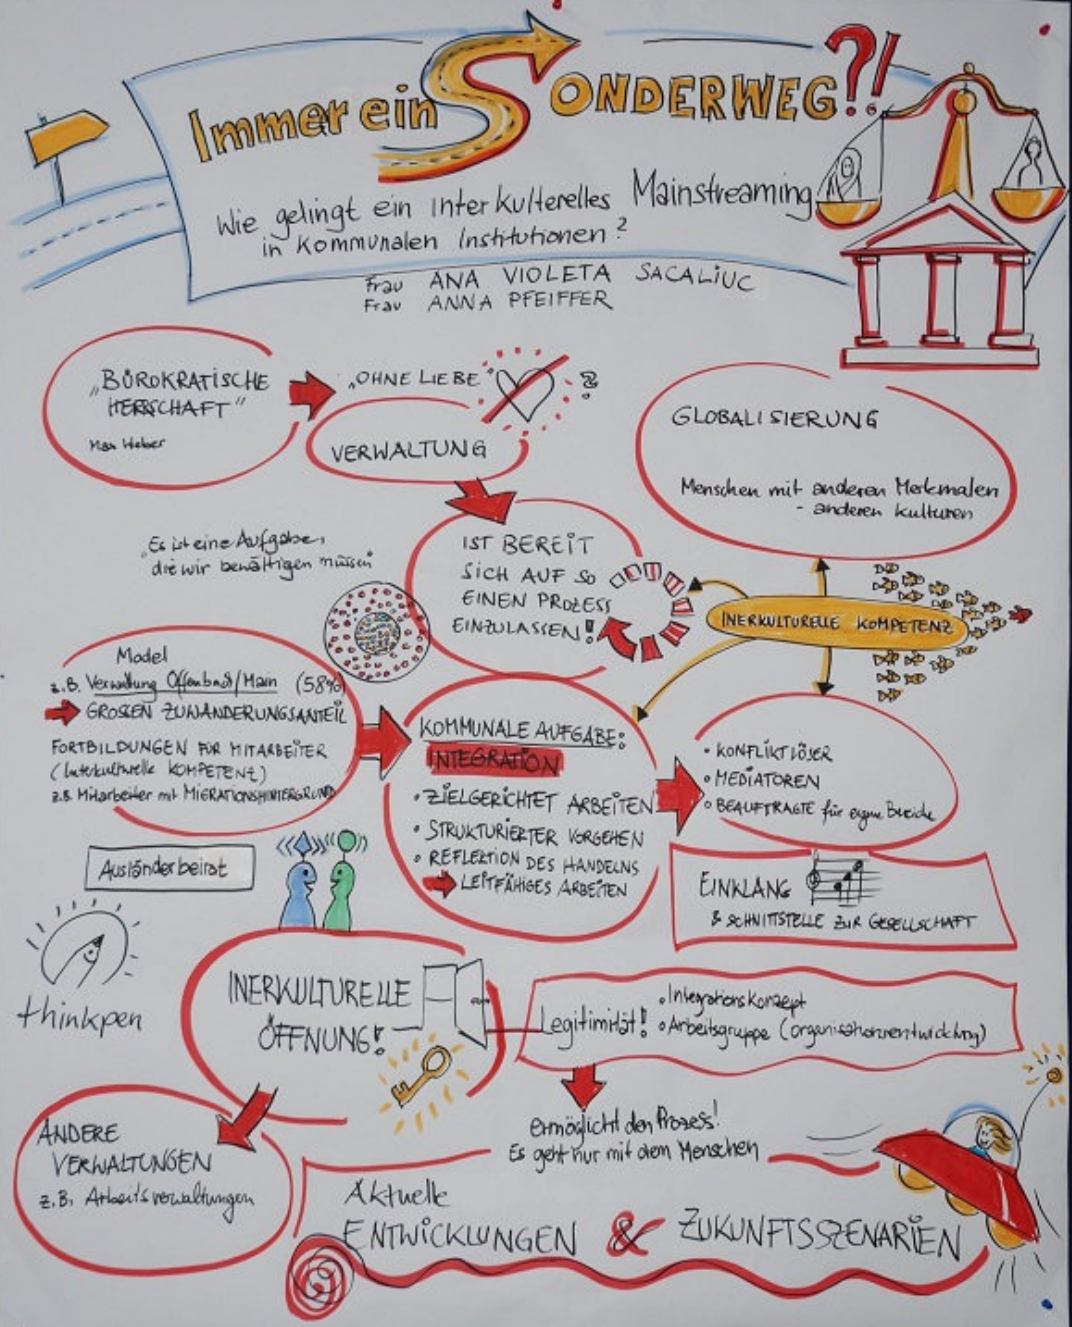 Immer ein SONDERWEG?!
Wie gelingt ein Interkulterelles Mainstreaming
in Kommunalen Institutionen?
Frau ANA VIOLETA SACALIUC
Frau ANNA PFEIFFER
„BÜROKRATISCHE
HERRSCHAFT"
Max Weber
„OHNE LIEBE" ?
VERWALTUNG
GLOBALISIERUNG
Menschen mit anderen Merkmalen
- anderen Kulturen
„Es ist eine Aufgabe,
die wir bewältigen müssen"
IST BEREIT
SICH AUF SO
EINEN PROZESS
EINZULASSEN!
INERKULTURELLE KOMPETENZ
Model
z.B. Verwaltung Offenbach/Main (58%)
GROSSEN ZUWANDERUNGSANTEIL
FORTBILDUNGEN FÜR MITARBEITER
(Interkulturelle KOMPETENZ)
z.B. Mitarbeiter mit MIGRATIONSHINTERGRUND
KOMMUNALE AUFGABE:
INTEGRATION
• ZIELGERICHTET ARBEITEN
• STRUKTURIERTER VORGEHEN
• REFLEKTION DES HANDELNS
LEITFÄHIGES ARBEITEN
• KONFLIKTLÖSER
• MEDIATOREN
• BEAUFTRAGTE für eigene Bereiche
Ausländerbeirat
EINKLANG
& SCHNITTSTELLE ZUR GESELLSCHAFT
thinkpen
INERKULTURELLE
ÖFFNUNG!
Legitimität!
• Integrationskonzept
• Arbeitsgruppe (Organisationsentwicklung)
ermöglicht den Prozess!
Es geht nur mit dem Menschen
ANDERE
VERWALTUNGEN
z.B. Arbeitsverwaltungen
Aktuelle
ENTWICKLUNGEN & ZUKUNFTSSZENARIEN